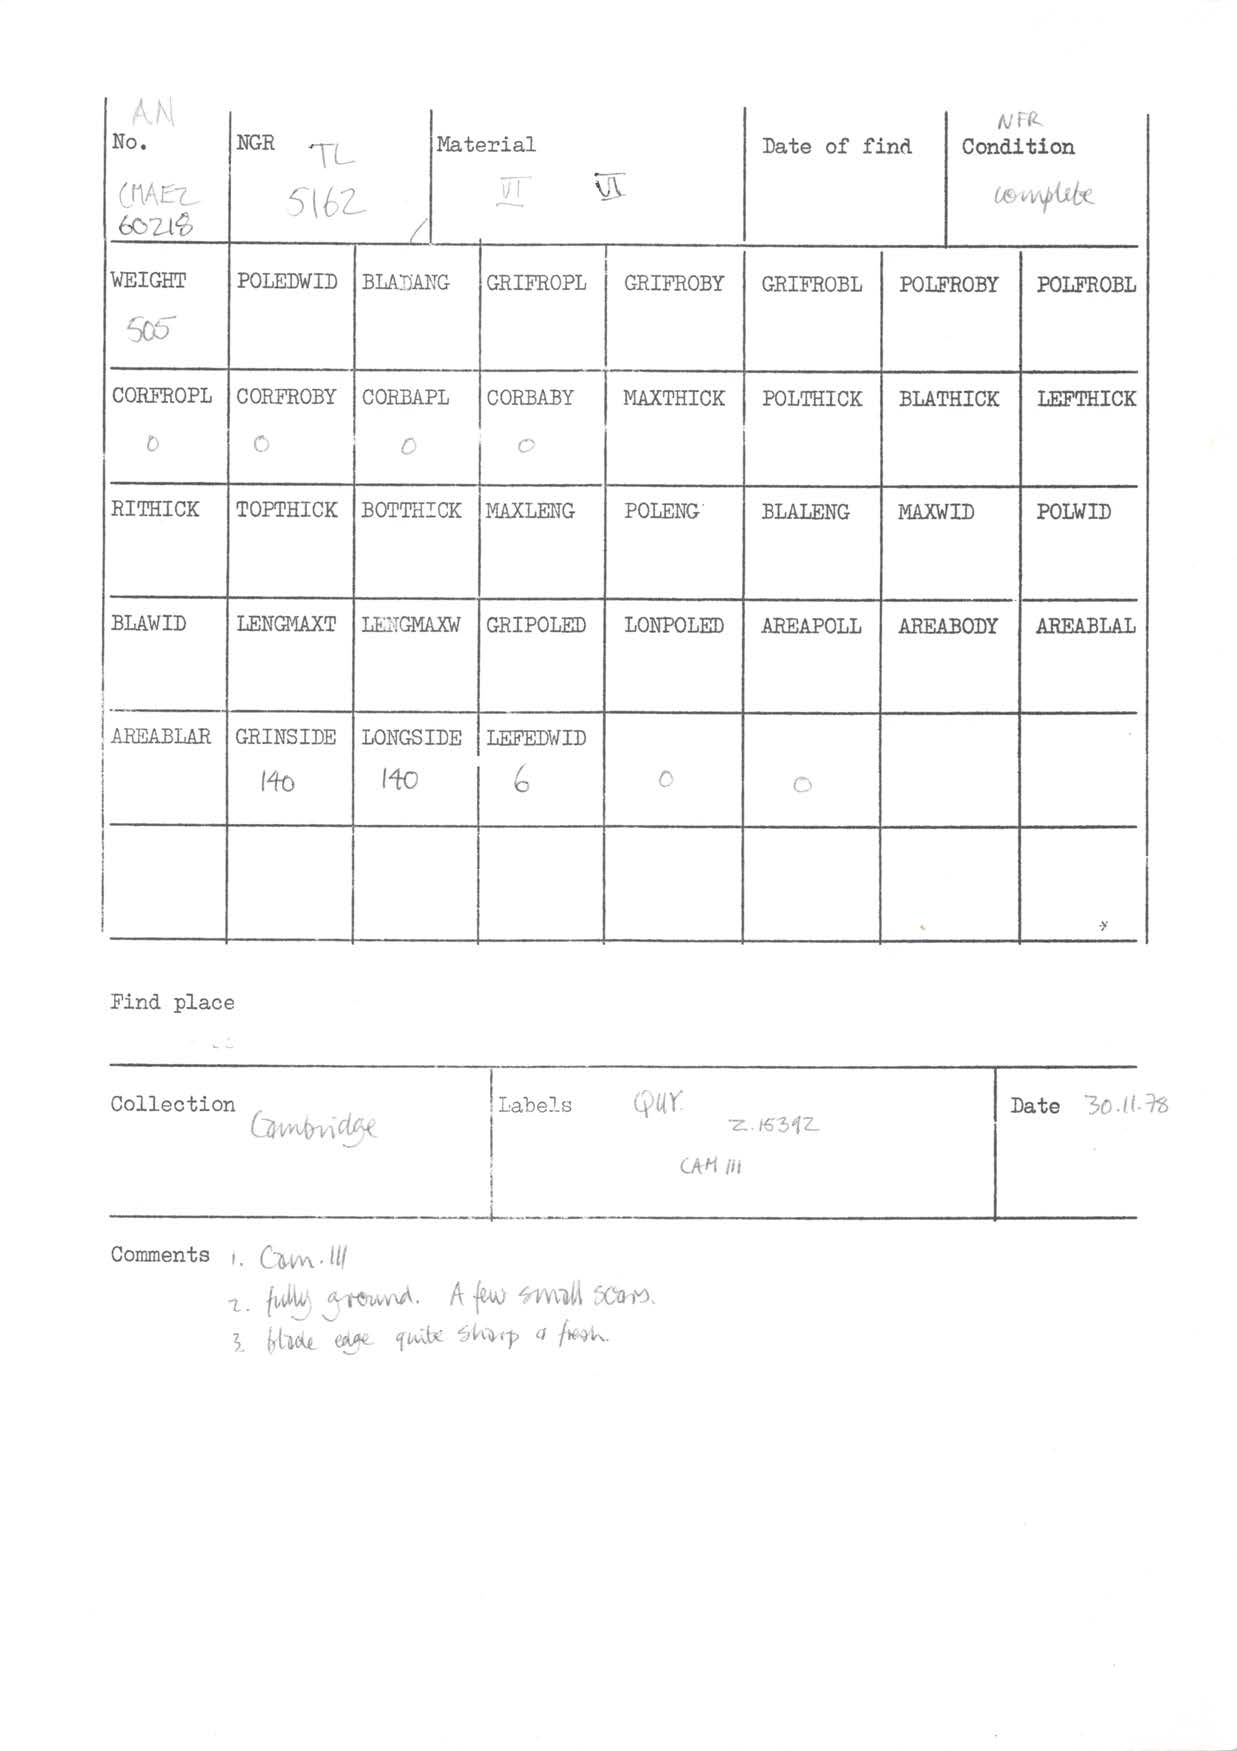 AN NFR
No. NGR TL Material Date of find Condition
CMAEZ 5162 VI VI complete
60218
WEIGHT POLEDWID BLADANG GRIFROPL GRIFROBY GRIFROBL POLFROBY POLFROBL
505
CORFROPL CORFROBY CORBAPL CORBABY MAXTHICK POLTHICK BLATHICK LEFTHICK
0 0 0 0
RITHICK TOPTHICK BOTTHICK MAXLENG POLENG BLALENG MAXWID POLWID
BLAWID LENGMAXT LENGMAXW GRIPOLED LONPOLED AREAPOLL AREABODY AREABLAL
AREABLAR GRINSIDE LONGSIDE LEFEDWID
140 140 6 0 0
Find place
Collection Cambridge Labels QUY. Date 30.11.78
Z.15392
CAM 111
Comments 1. Cam. 111
2. fully ground. A few small scars.
3. blade edge quite sharp & fresh.